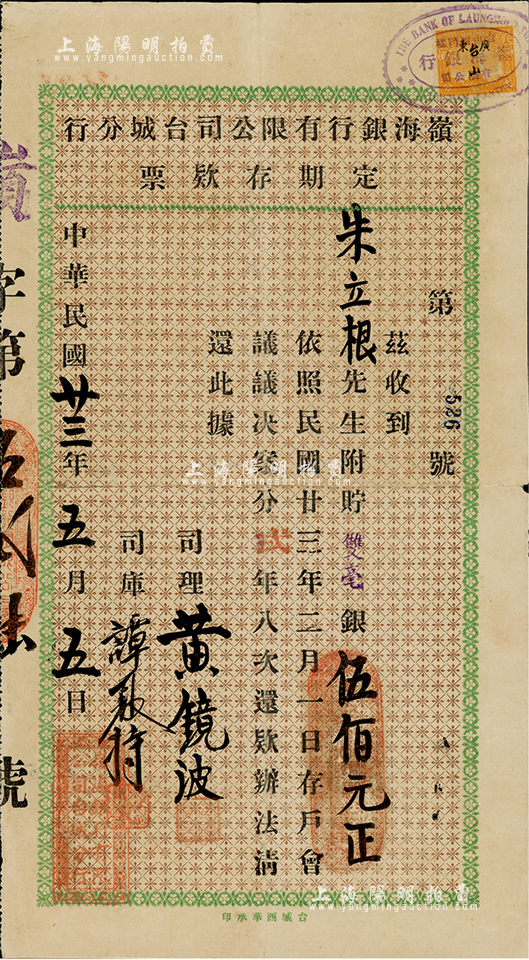 嶺海銀行有限公司台城分行
定期存欵票
第526號
茲收到
朱立根先生附貯雙毫銀伍佰元正
依照民國廿三年二月一日存戶會
議議决案分弍年八次還欵辦法淸
還此據
司理黃鏡波
司庫譚
中華民國廿三年五月五日
台城西華承印
THE BANK OF
廣東
台山
字第
號
上海陽明拍賣
www.yangmingauction.com
上海陽明拍賣
www.yangmingauction.com
上海陽明拍賣
www.yangmingauction.com